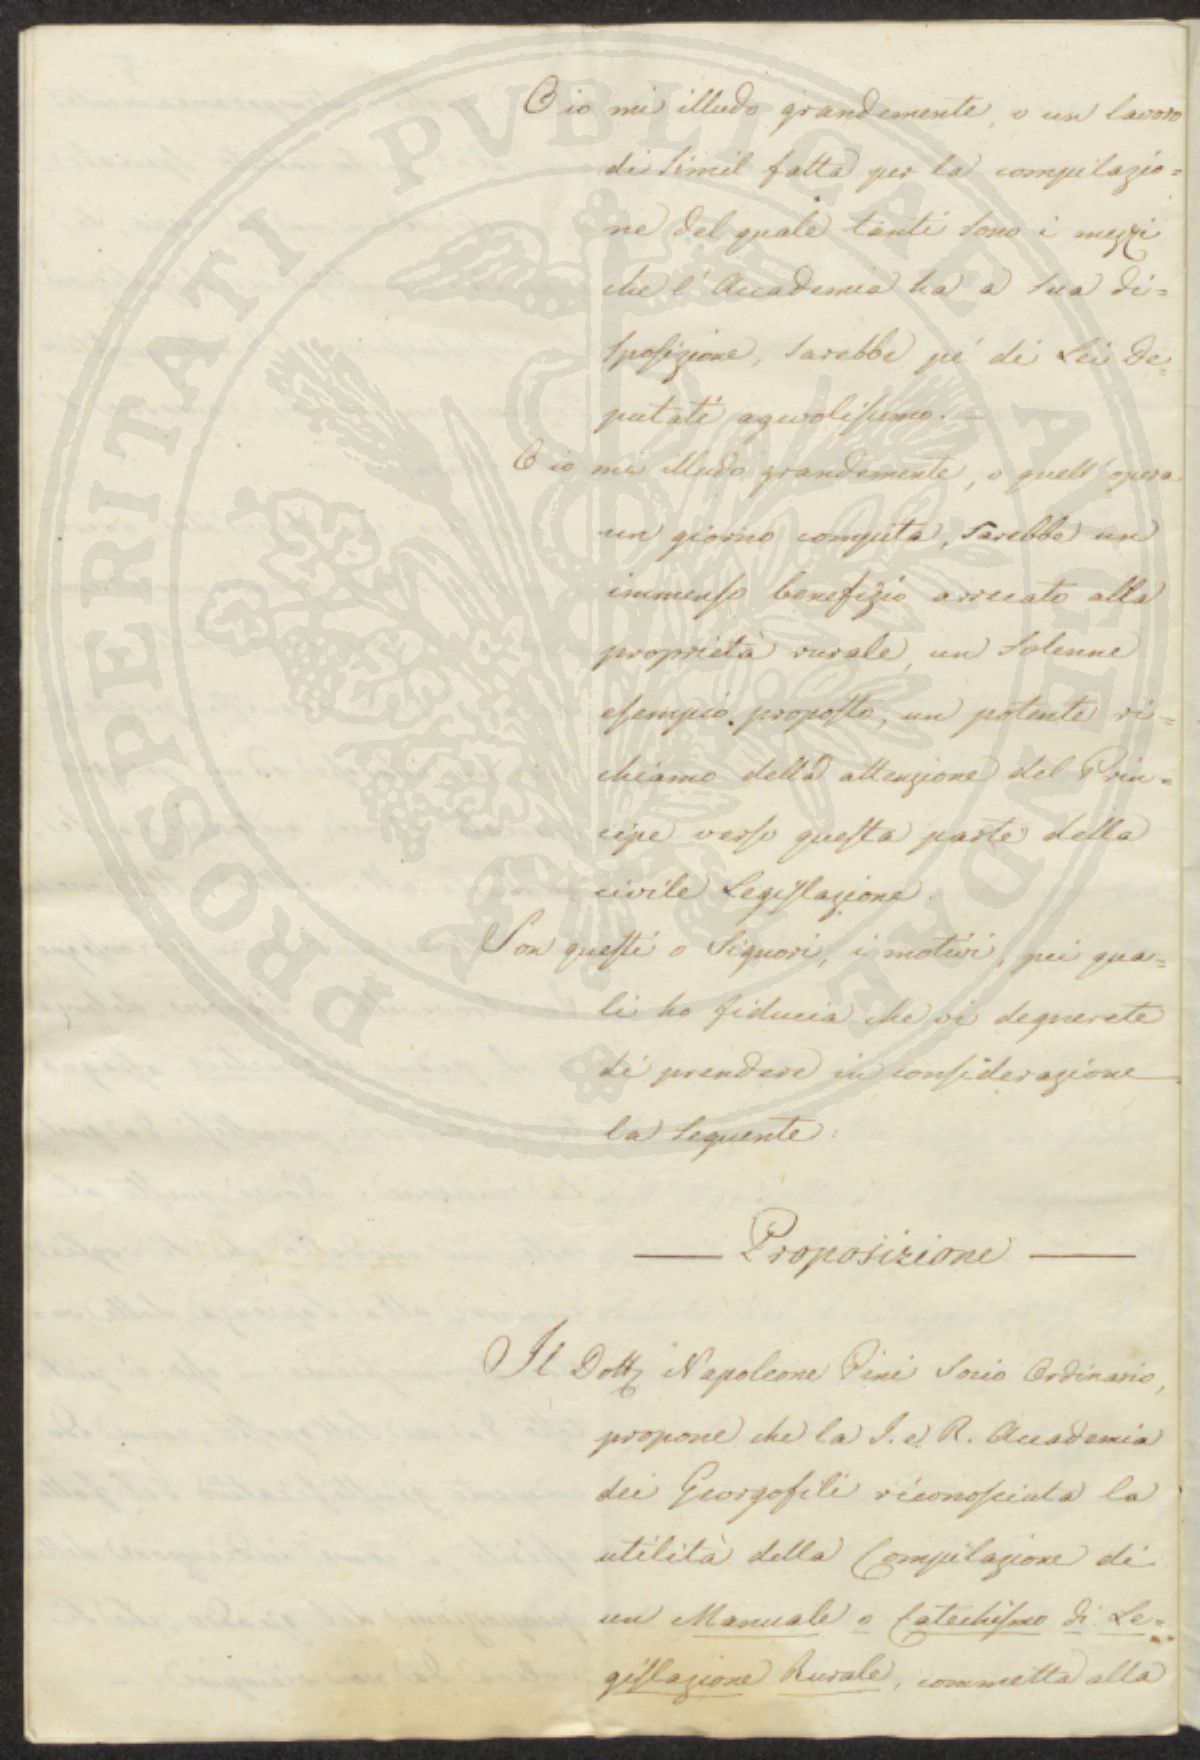 O io mi illudo grandemente, o un lavoro
di simil fatta per la compilazio=
ne del quale tanti sono i mezzi
che l'Accademia ha a sua di=
sposizione, sarebbe pe' di Lei De=
putati agevolissimo. —
O io mi illudo grandemente, o quell'opera
un giorno compita, sarebbe un
immenso benefizio arrecato alla
proprietà rurale, un solenne
esempio proposto, un potente ri=
chiamo della attenzione del Prin=
cipe verso questa parte della
civile Legislazione.
Son questi o Signori, i motivi, pei qua=
li ho fiducia che vi degnerete
di prendere in considerazione
la seguente:
— Proposizione —
Il Dott. Napoleone Pini Socio Ordinario,
propone che la I. e R. Accademia
dei Georgofili riconosciuta la
utilità della Compilazione di
un Manuale o Catechismo di Le=
gislazione Rurale, commetta alla
PROSPERITATI PVBLICAE AVGENDAE